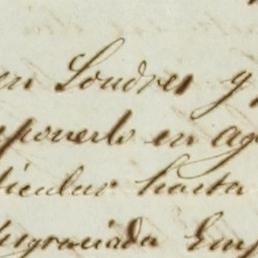 en Londres y
ponerlo en ag
ticular hasta
desgraciada Emp